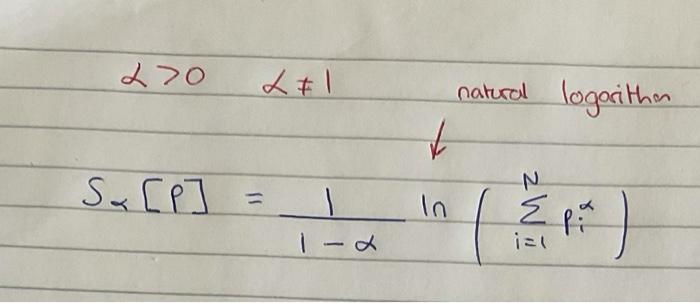 α > 0 α ≠ 1 natural logarithm
↓
Sα [P] = 1/(1 − α) ln ( Σ_{i=1}^{N} p_i^α )